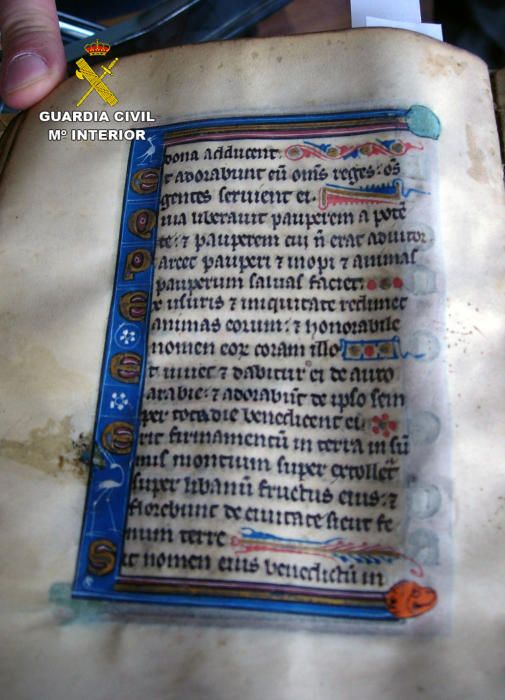 GUARDIA CIVIL
Mº INTERIOR
dona adducent.
Et adorabunt eū om̄s reges: om̄s
gentes servient ei
Quia liberavit pauperem a potē
te: ⁊ pauperem cui n̄ erat adiutor
Parcet pauperi ⁊ inopi ⁊ animas
pauperum salvas faciet.
Ex usuris ⁊ iniquitate redimet
animas eorum: ⁊ honorabile
nomen eoꝝ coram illo
Et vivet ⁊ dabitur ei de auro
arabie: ⁊ adorabūt de ipso sem
per tota die benedicent ei
Erit firmamentū in terra in sū
mis montium super extollet
super libanū fructus eius: ⁊
florebunt de civitate sicut fe
num terre
Sit nomen eius benedictū in